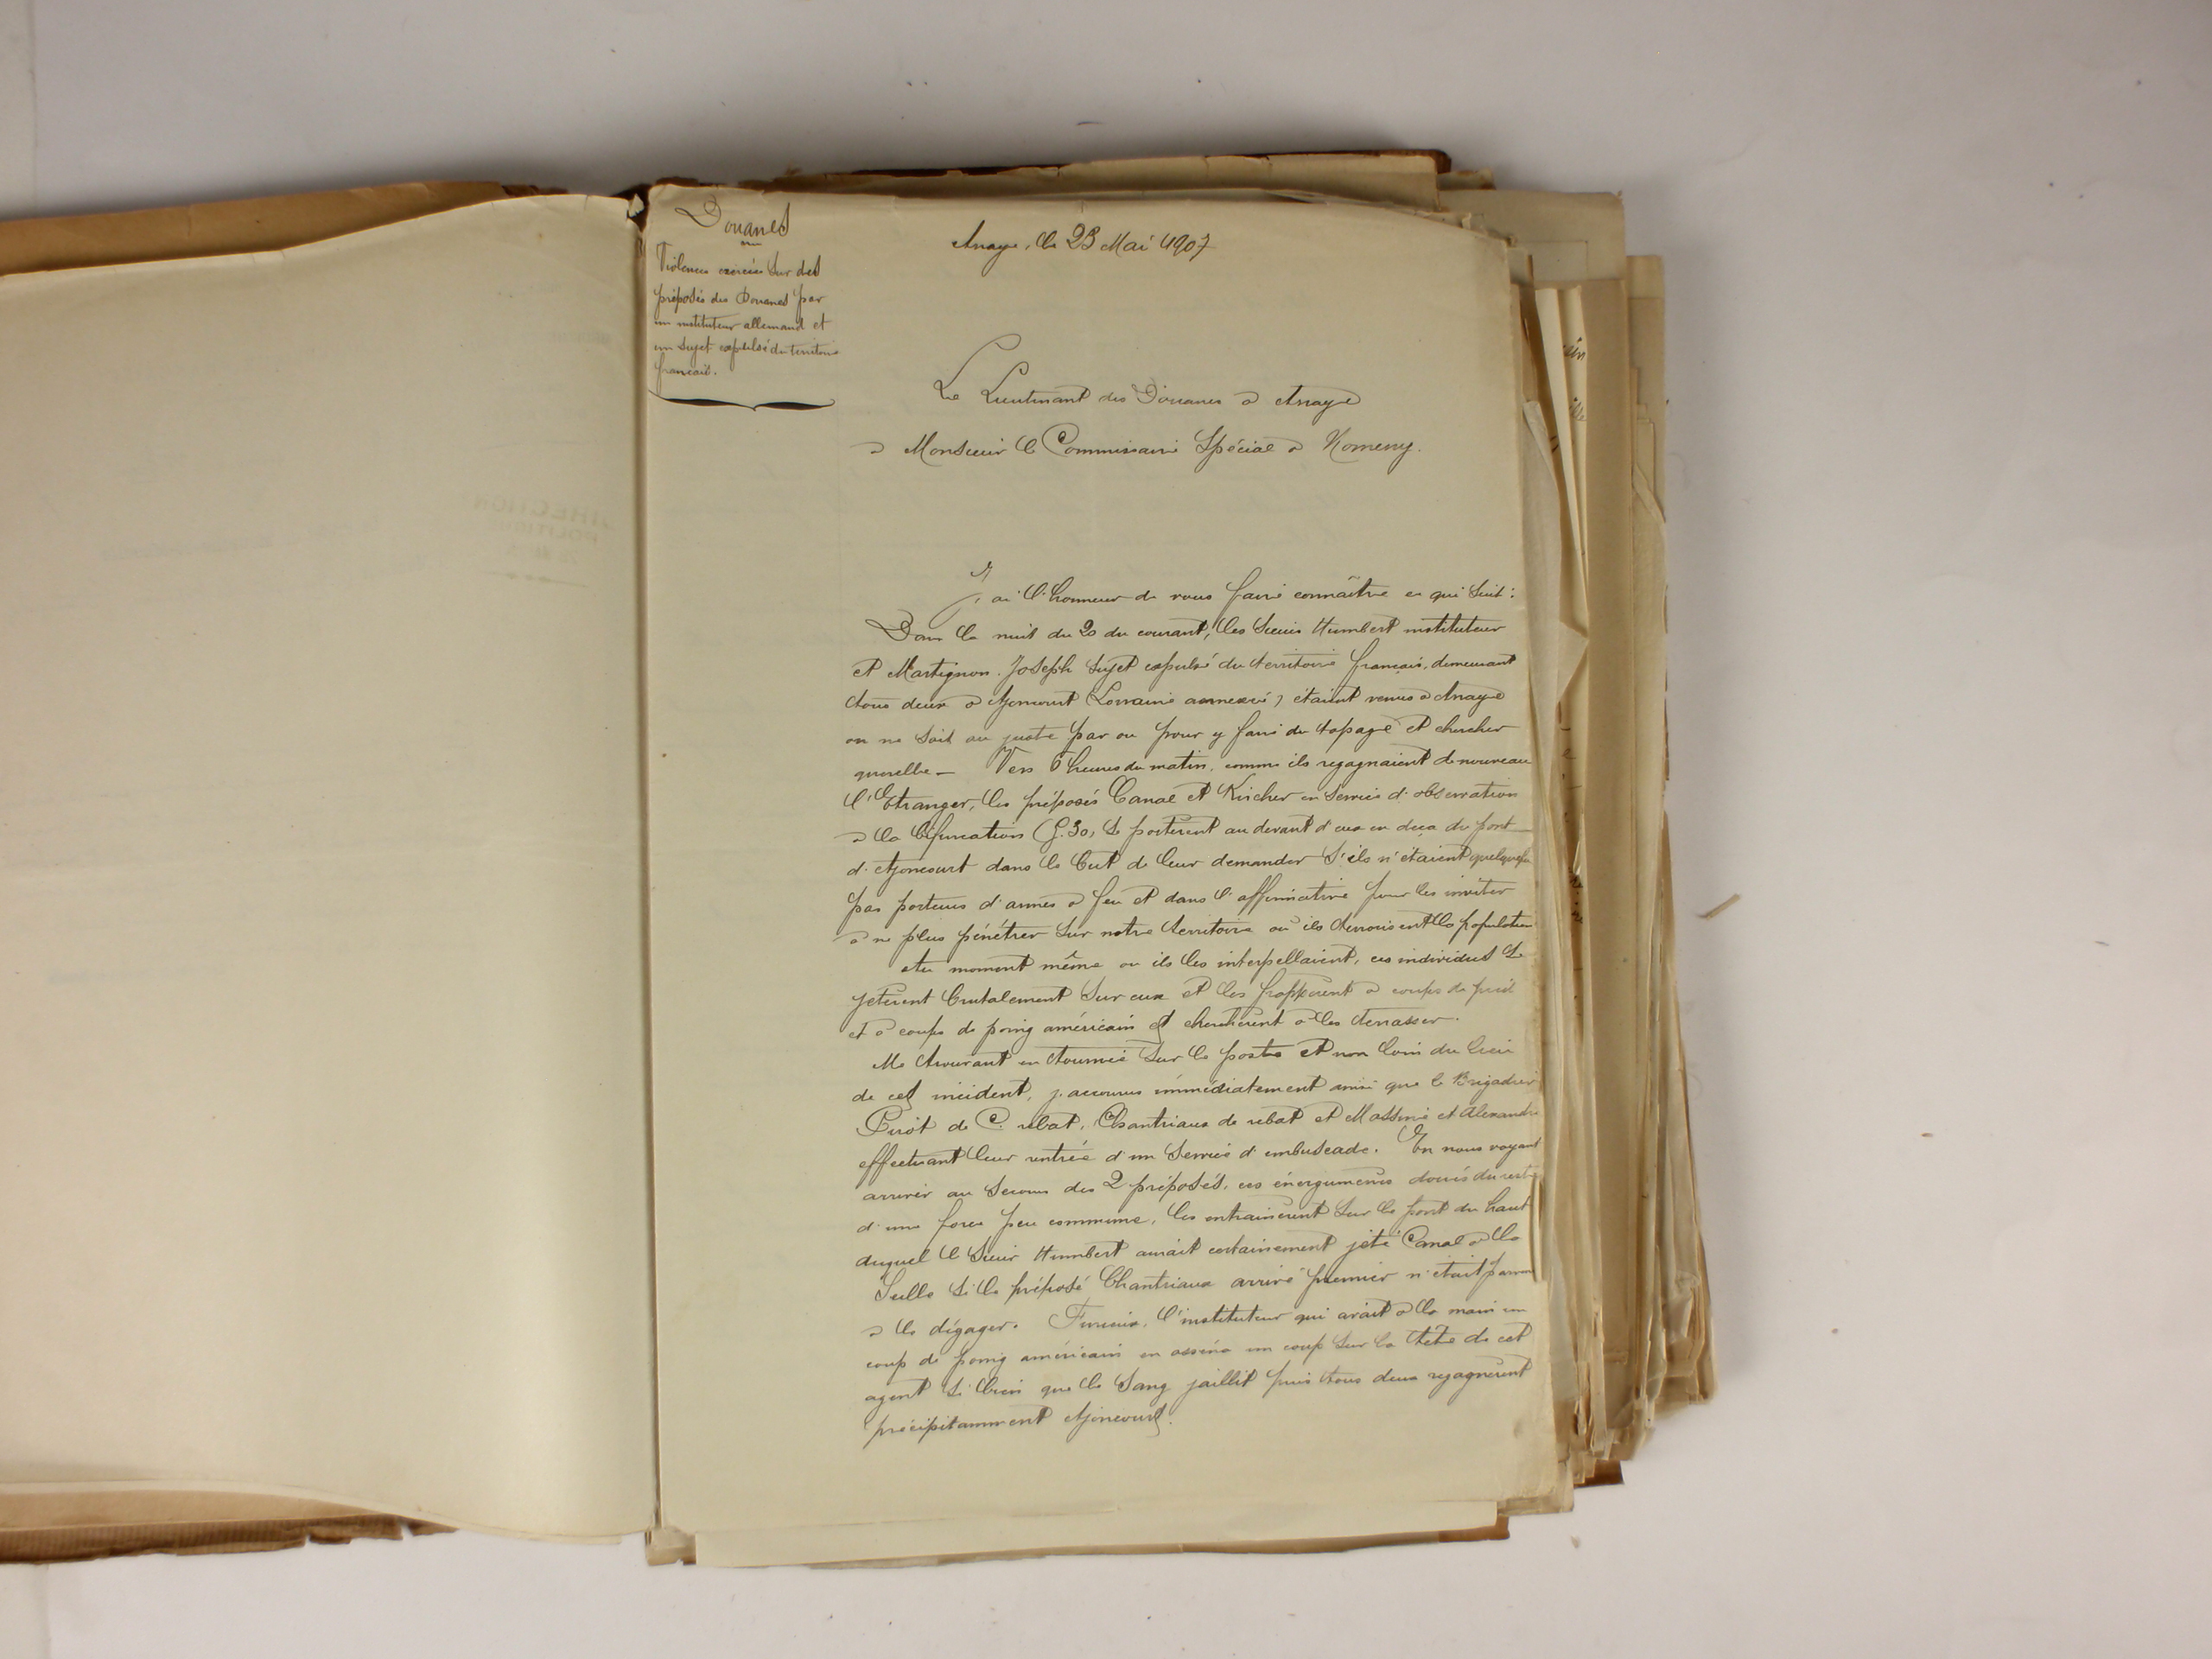 Douanes
Violences exercées sur des
préposés des Douanes par
un instituteur allemand et
un sujet expulsé du territoire
français.
Arraye, le 23 Mai 1907
Le Lieutenant des Douanes à Arraye
à Monsieur le Commissaire Spécial à Nomeny.
J'ai l'honneur de vous faire connaître ce qui suit:
Dans la nuit du 20 du courant, les sieurs Humbert instituteur
et Martignon Joseph sujet expulsé du territoire français, demeurant
tous deux à Ajoncourt (Lorraine annexée) étaient venus à Arraye
on ne sait au juste par où pour y faire du tapage et chercher
querelle — Vers heures du matin, comme ils regagnaient de nouveau
l'Etranger, les préposés Canal et Kircher en service d'observation
à la bifurcation (G. 30) se portèrent au devant d'eux en deça du pont
d'Ajoncourt dans le but de leur demander s'ils n'étaient quelquefois
pas porteurs d'armes à feu et dans l'affirmative pour les inviter
à ne plus pénétrer sur notre territoire où ils terrorisent la population
Au moment même où ils les interpellaient, ces individus se
jetèrent brutalement sur eux et les frappèrent à coups de pied
et à coups de poing américain et cherchèrent à les terrasser.
Me trouvant en tournée sur le poste et non loin du lieu
de cet incident, j'accourus immédiatement ainsi que le Brigadier
Pirot de C. rebat, Chantriaux de rebat et Massine et Alexandre
effectuant leur rentrée d'un service d'embuscade. En nous voyant
arriver au secours des 2 préposés, ces énergumènes doués du reste
d'une force peu commune, les entrainèrent sur le pont du haut
duquel le Sieur Humbert aurait certainement jeté Canal à la
Seille si le préposé Chantriaux arrivé premier n'était parvenu
à le dégager. Furieux, l'instituteur qui avait à la main un
coup de poing américain en asséna un coup sur la tête de cet
agent si bien que le sang jaillit puis tous deux regagnèrent
précipitamment Ajoncourt.
DIRECTION
POLITIQUE